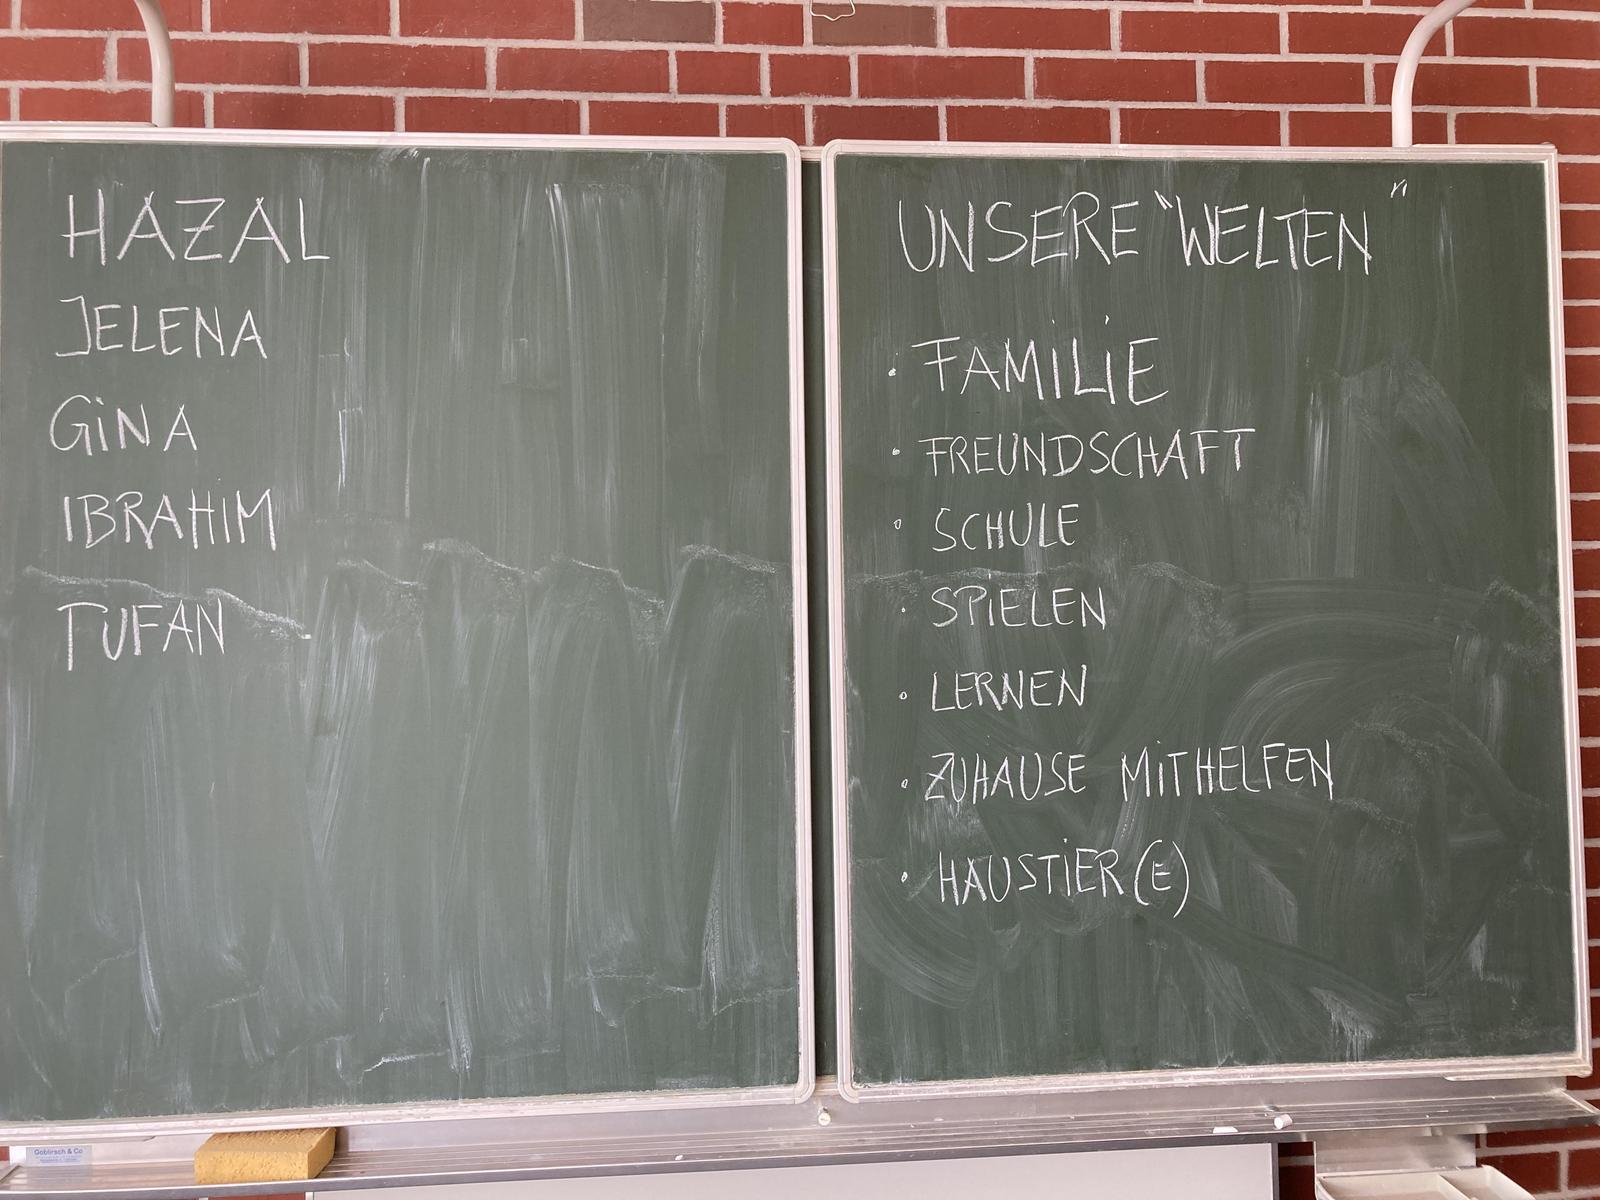 HAZAL
JELENA
GiNA
IBRAHiM
TUFAN
UNSERE "WELTEN"
• FAMiLiE
• FREUNDSCHAFT
• SCHULE
• SPiELEN
• LERNEN
• ZUHAUSE MiTHELFEN
• HAUSTiER(E)
Goblirsch & Co